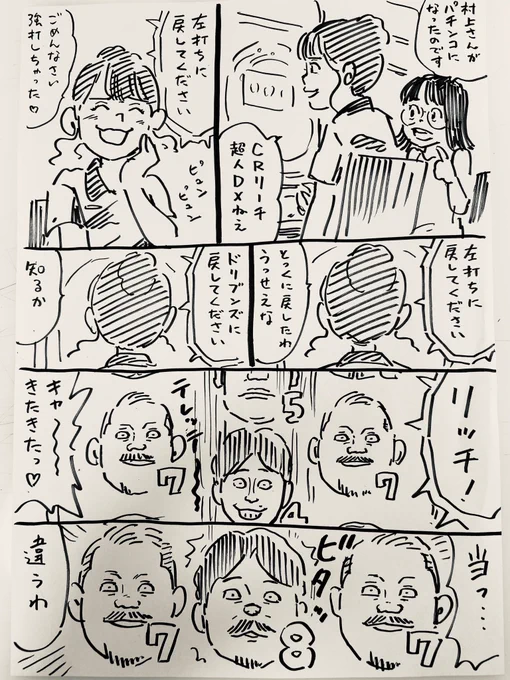 村上さんが
パチンコに
なったのです
CRリーチ
超人DXねえ
左打ちに
戻してください
ごめんなさい
強打しちゃった♡
ピュン
ピュン
左打ちに
戻してください
とっくに戻したわ
うっせえな
ドリブンズに
戻してください
知るか
リッチ!
7
5
テレッテレー
7
キャ〜〜
きたきたっ♡
当っ…
ビタッ
7
8
7
違うわ